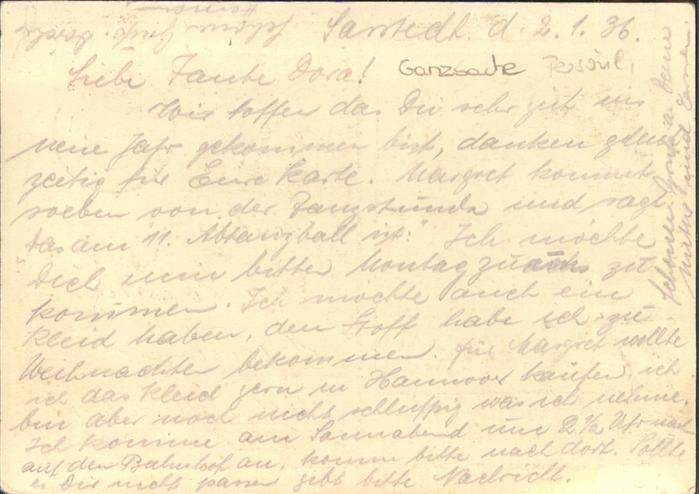 Sarstedt. d. 2.1.36.
Liebe Tante Dora!
Ganzsache
Wir hoffen das Du sehr gut ins
neue Jahr gekommen bist, danken gleich
zeitig für Eure Karte. Margret kommt
soeben von der Tanzstunde und sagt
das am 11. Abtanzball ist. Ich möchte
Dich nun bitten Montag zu uns zu
kommen. Ich möchte auch ein
Kleid haben, den Stoff habe ich zu
Weihnachten bekommen. für Margret wollte
ich das Kleid gern in Hannover kaufen, ich
bin aber noch nicht schlüssig was ich nehme.
Ich komme am Sonnabend um 2 1/2 Uhr
auf den Bahnhof an, komme bitte nach dort. Sollte
es Dir nicht passen gibt bitte Nachricht.